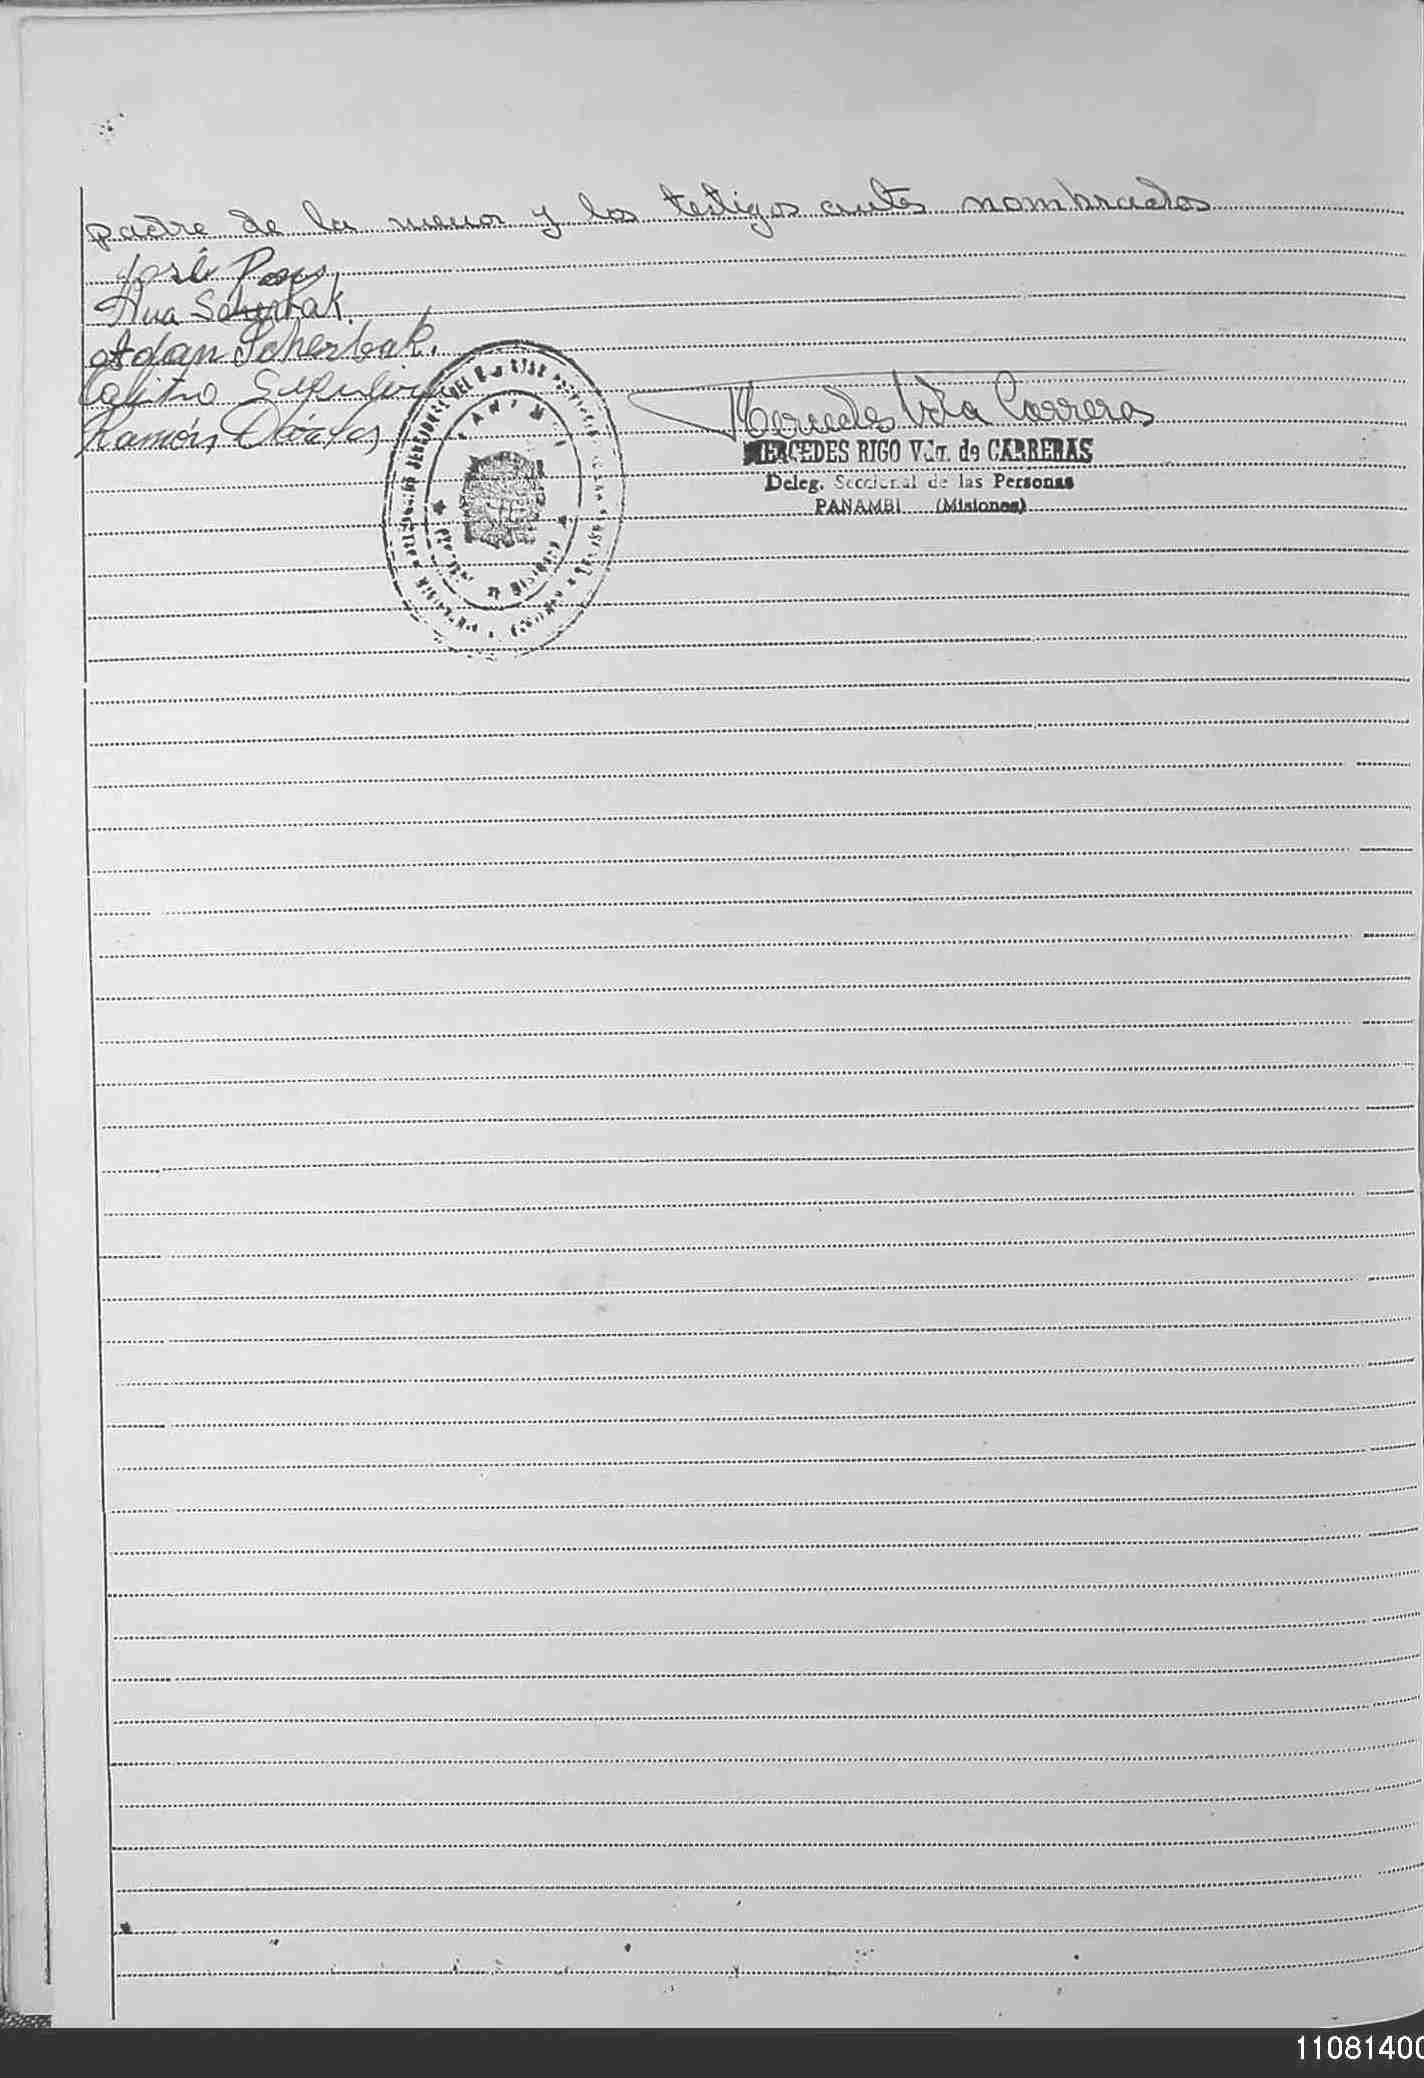 padre de la menor y los testigos antes nombrados
José
Ana Scherbak.
Adan Scherbak.
Ramón
Mercedes Vda Carreras
MERCEDES RIGO Vda. de CARRERAS
Deleg. Seccional de las Personas
PANAMBI (Misiones)
PANAMBI
11081400